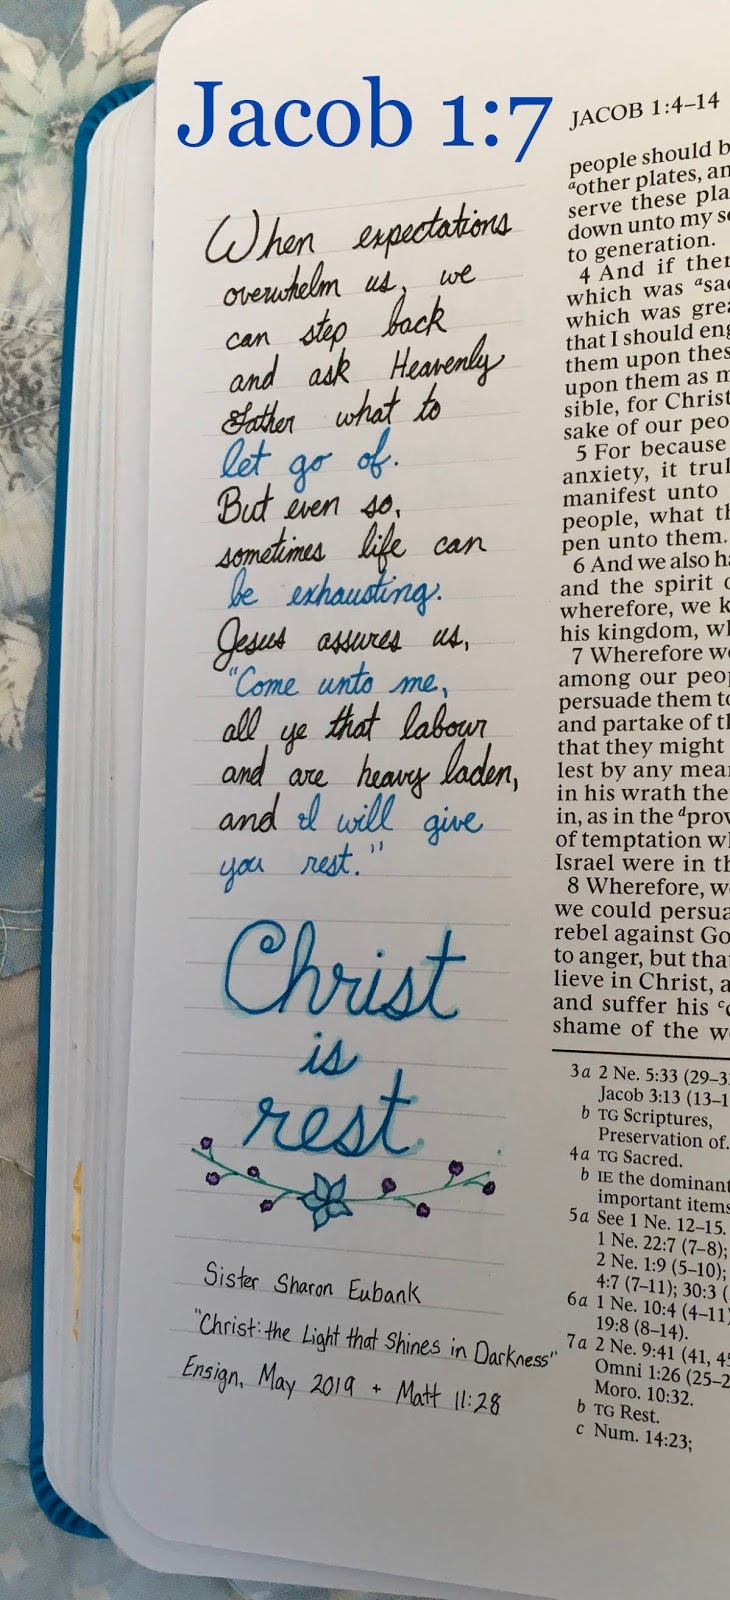 Jacob 1:7
When expectations
overwhelm us, we
can step back
and ask Heavenly
Father what to
let go of.
But even so,
sometimes life can
be exhausting.
Jesus assures us,
"Come unto me,
all ye that labour
and are heavy laden,
and I will give
you rest."
Christ
is
rest
Sister Sharon Eubank
"Christ: the Light that Shines in Darkness"
Ensign, May 2019 + Matt 11:28
JACOB 1:4–14
people should
a other plates,
serve these
down unto my
to generation.
4 And if
which was
which was
that I should
them upon
upon them as
sible, for Christ
sake of our
5 For because
anxiety, it
manifest unto
people, what
pen unto them.
6 And we also
and the spirit
wherefore, we
his kingdom,
7 Wherefore
among our
persuade them
and partake of
that they might
lest by any
in his wrath
in, as in the
of temptation
Israel were in
8 Wherefore,
we could
rebel against
to anger, but
lieve in Christ,
and suffer his
shame of the
3a 2 Ne. 5:33
Jacob 3:13
b TG Scriptures,
Preservation of.
4a TG Sacred.
b IE the dominant
important items
5a See 1 Ne. 12–15.
1 Ne. 22:7 (7–8);
2 Ne. 1:9 (5–10);
4:7 (7–11); 30:3
6a 1 Ne. 10:4 (4–11)
19:8 (8–14).
7a 2 Ne. 9:41
Omni 1:26
Moro. 10:32.
b TG Rest.
c Num. 14:23;